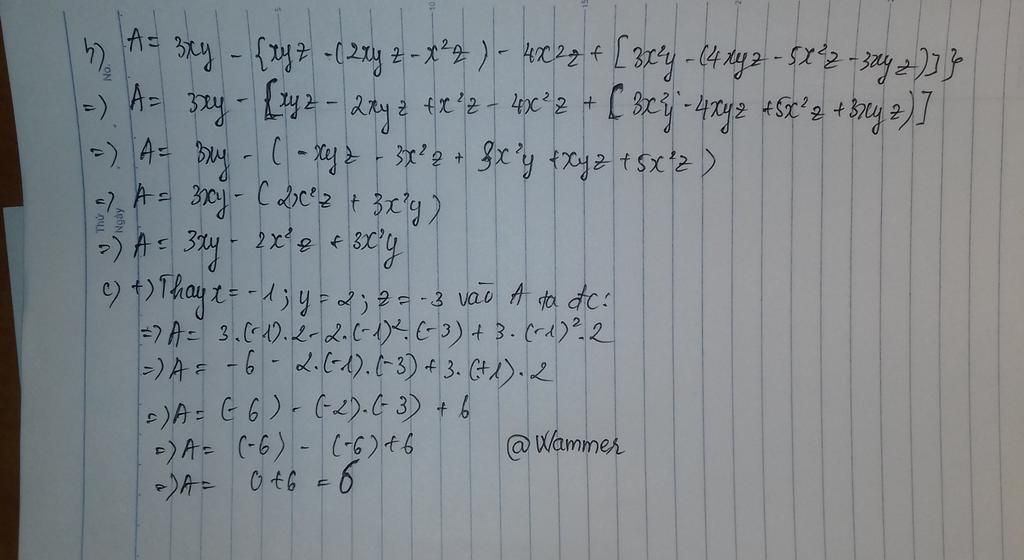 b) A = 3xy - {xyz - (2xyz - x²z) - 4x²z + [3x²y - (4xyz - 5x²z - 3xyz)]}
=) A = 3xy - [xyz - 2xyz + x²z - 4x²z + [3x²y - 4xyz + 5x²z + 3xyz)]
=) A = 3xy - (-xyz - 3x²z + 3x²y + xyz + 5x²z)
=) A = 3xy - (2x²z + 3x²y)
=) A = 3xy - 2x²z + 3x²y
c) +) Thay x = -1 ; y = 2 ; z = -3 vào A ta đc:
=) A = 3.(-1).2 - 2.(-1)².(-3) + 3.(-1)².2
=) A = -6 - 2.(-1).(-3) + 3.(+1).2
=) A = (-6) - (-2).(-3) + 6
=) A = (-6) - (-6) + 6 @Wammer
=) A = 0 + 6 = 6
Thứ
Ngày
No.